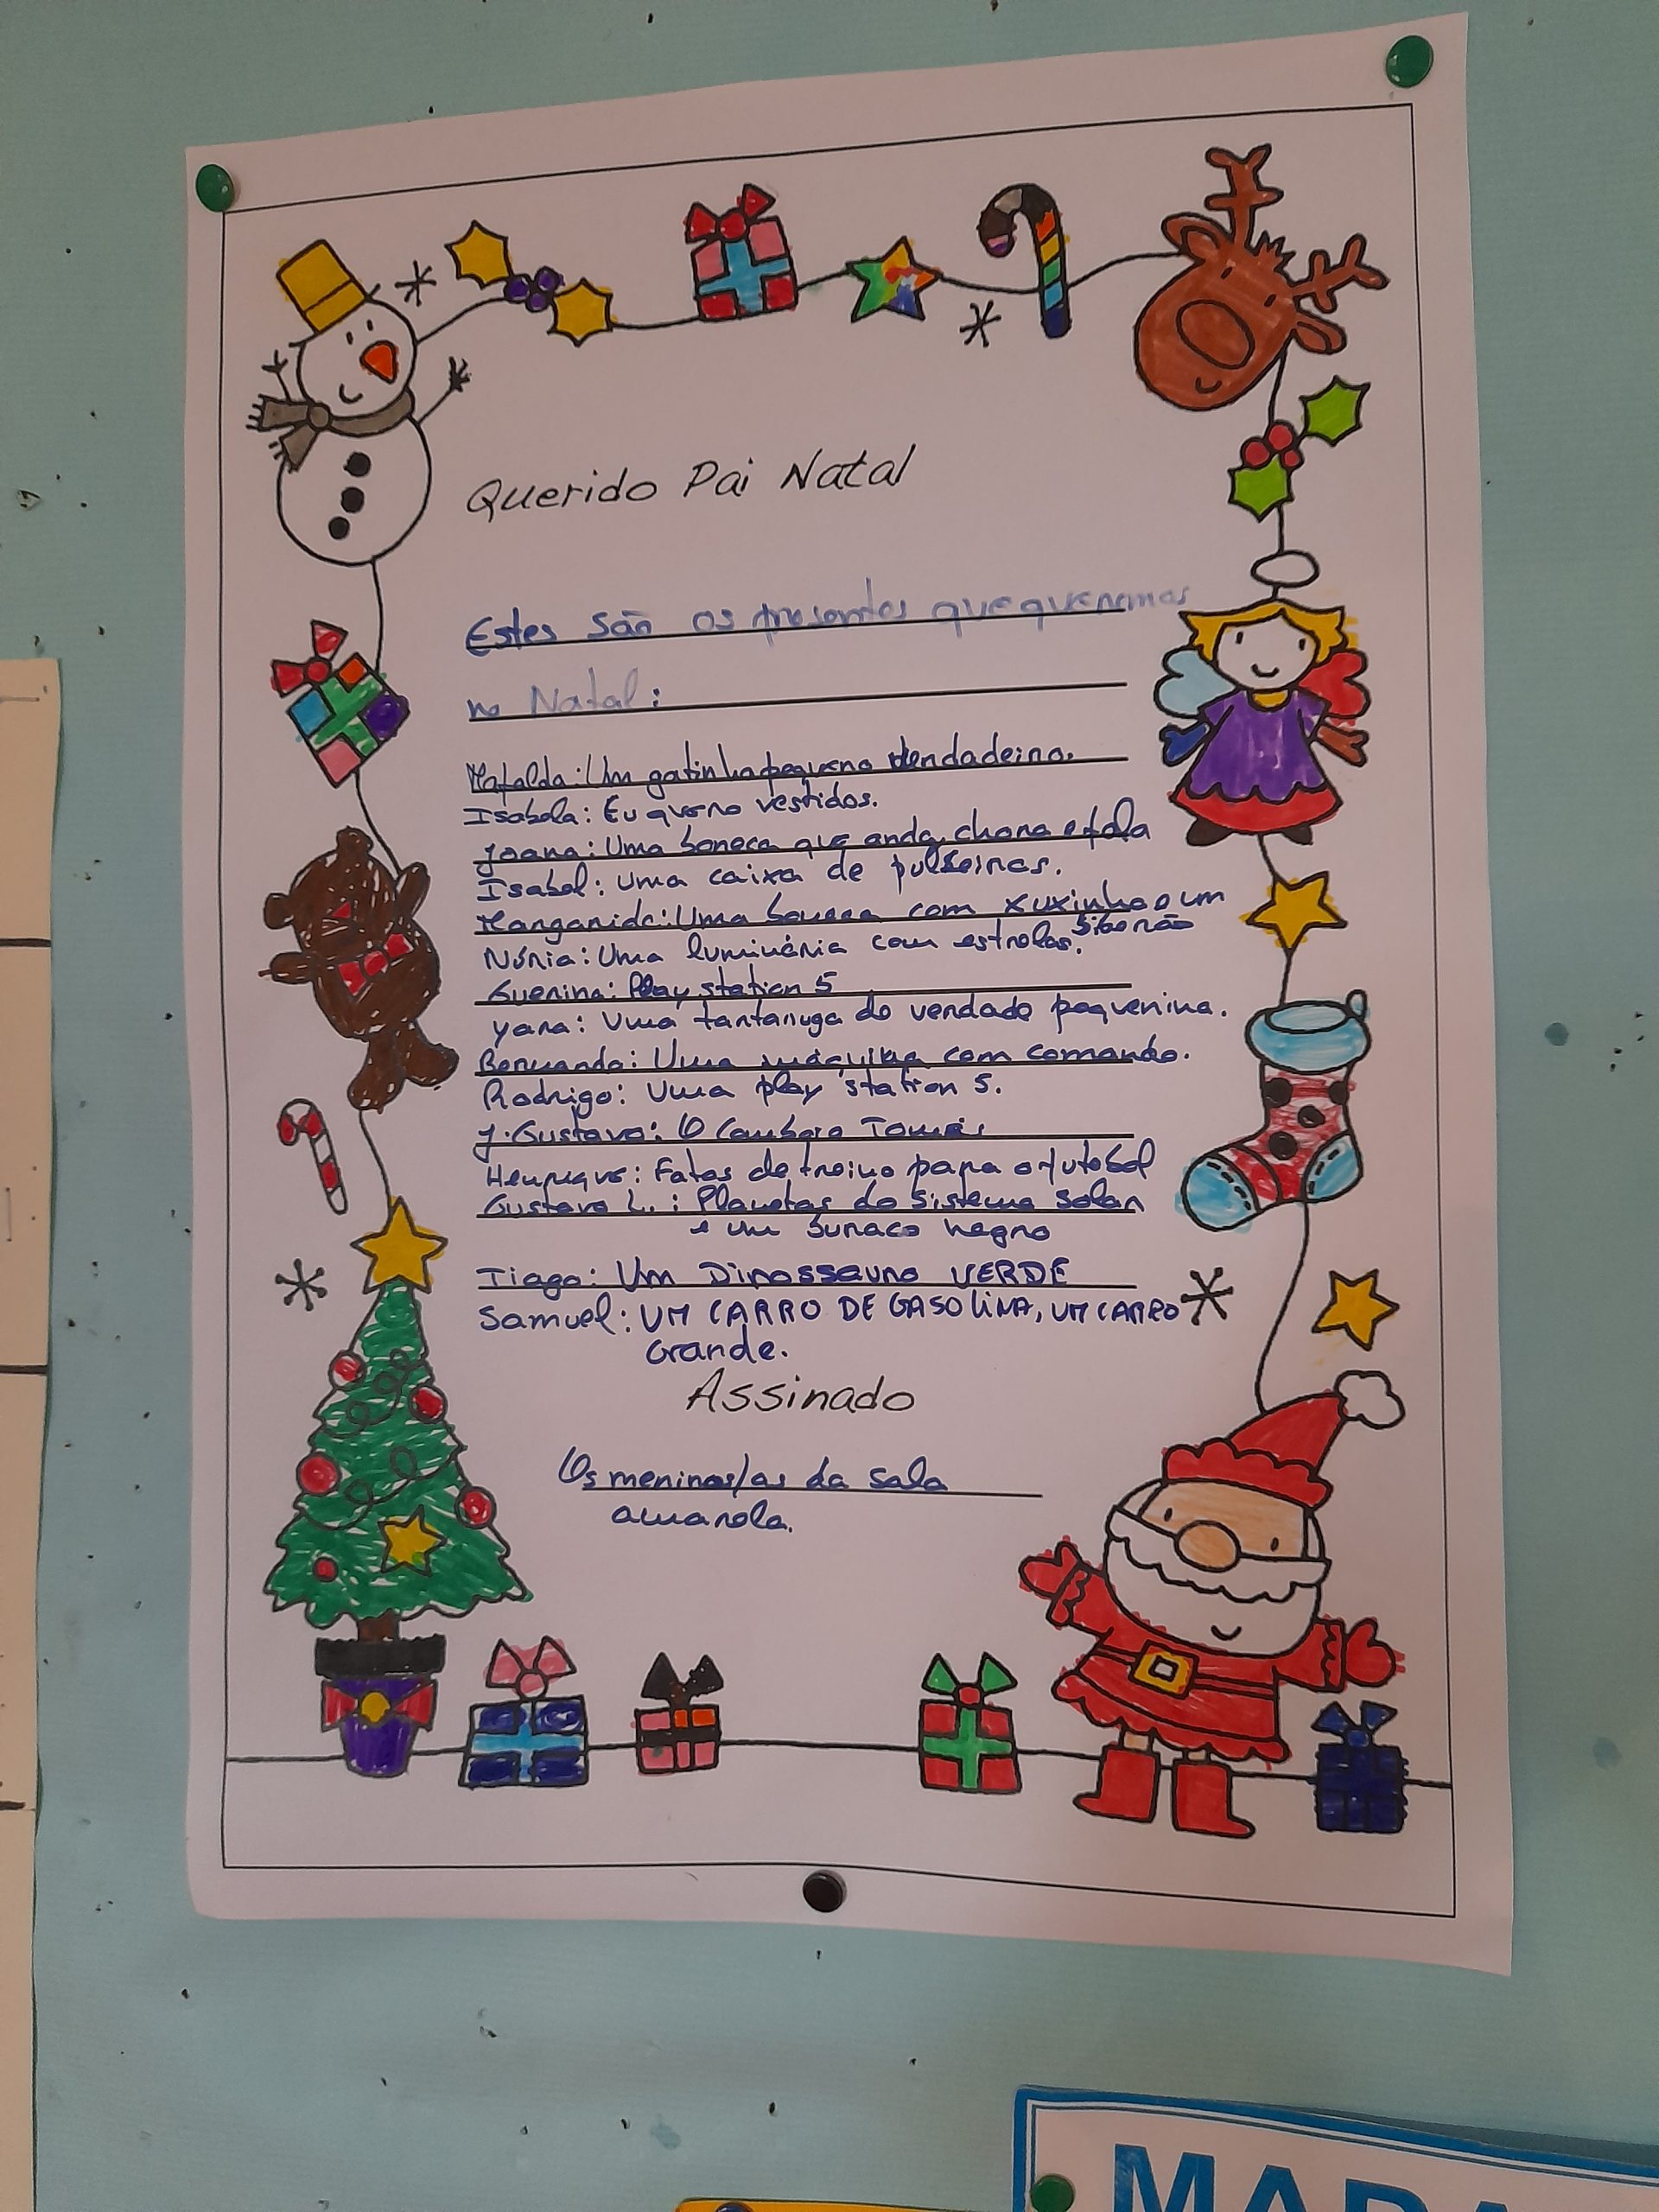 Querido Pai Natal
Estes são os presentes que queremos
no Natal:
Mafalda: Um gatinho pequeno verdadeiro.
Isabela: Eu quero vestidos.
Joana: Uma boneca que anda, chora e fala
Isabel: Uma caixa de pulseiras.
Margarida: Uma boneca com xuxinha e um
biberão
Núria: Uma luminária com estrelas.
Guerina: Play station 5
Yara: Uma tartaruga de verdade pequenina.
Bernardo: Uma máquina com comando.
Rodrigo: Uma play station 5.
J. Gustavo: O Comboio Tomás
Henrique: Fatos de treino para o futebol
Gustavo L.: Planetas do Sistema Solar
e um buraco negro
Tiago: Um Dinossauro VERDE
Samuel: UM CARRO DE GASOLINA, UM CARRO
Grande.
Assinado
Os meninos/as da sala
amarela.